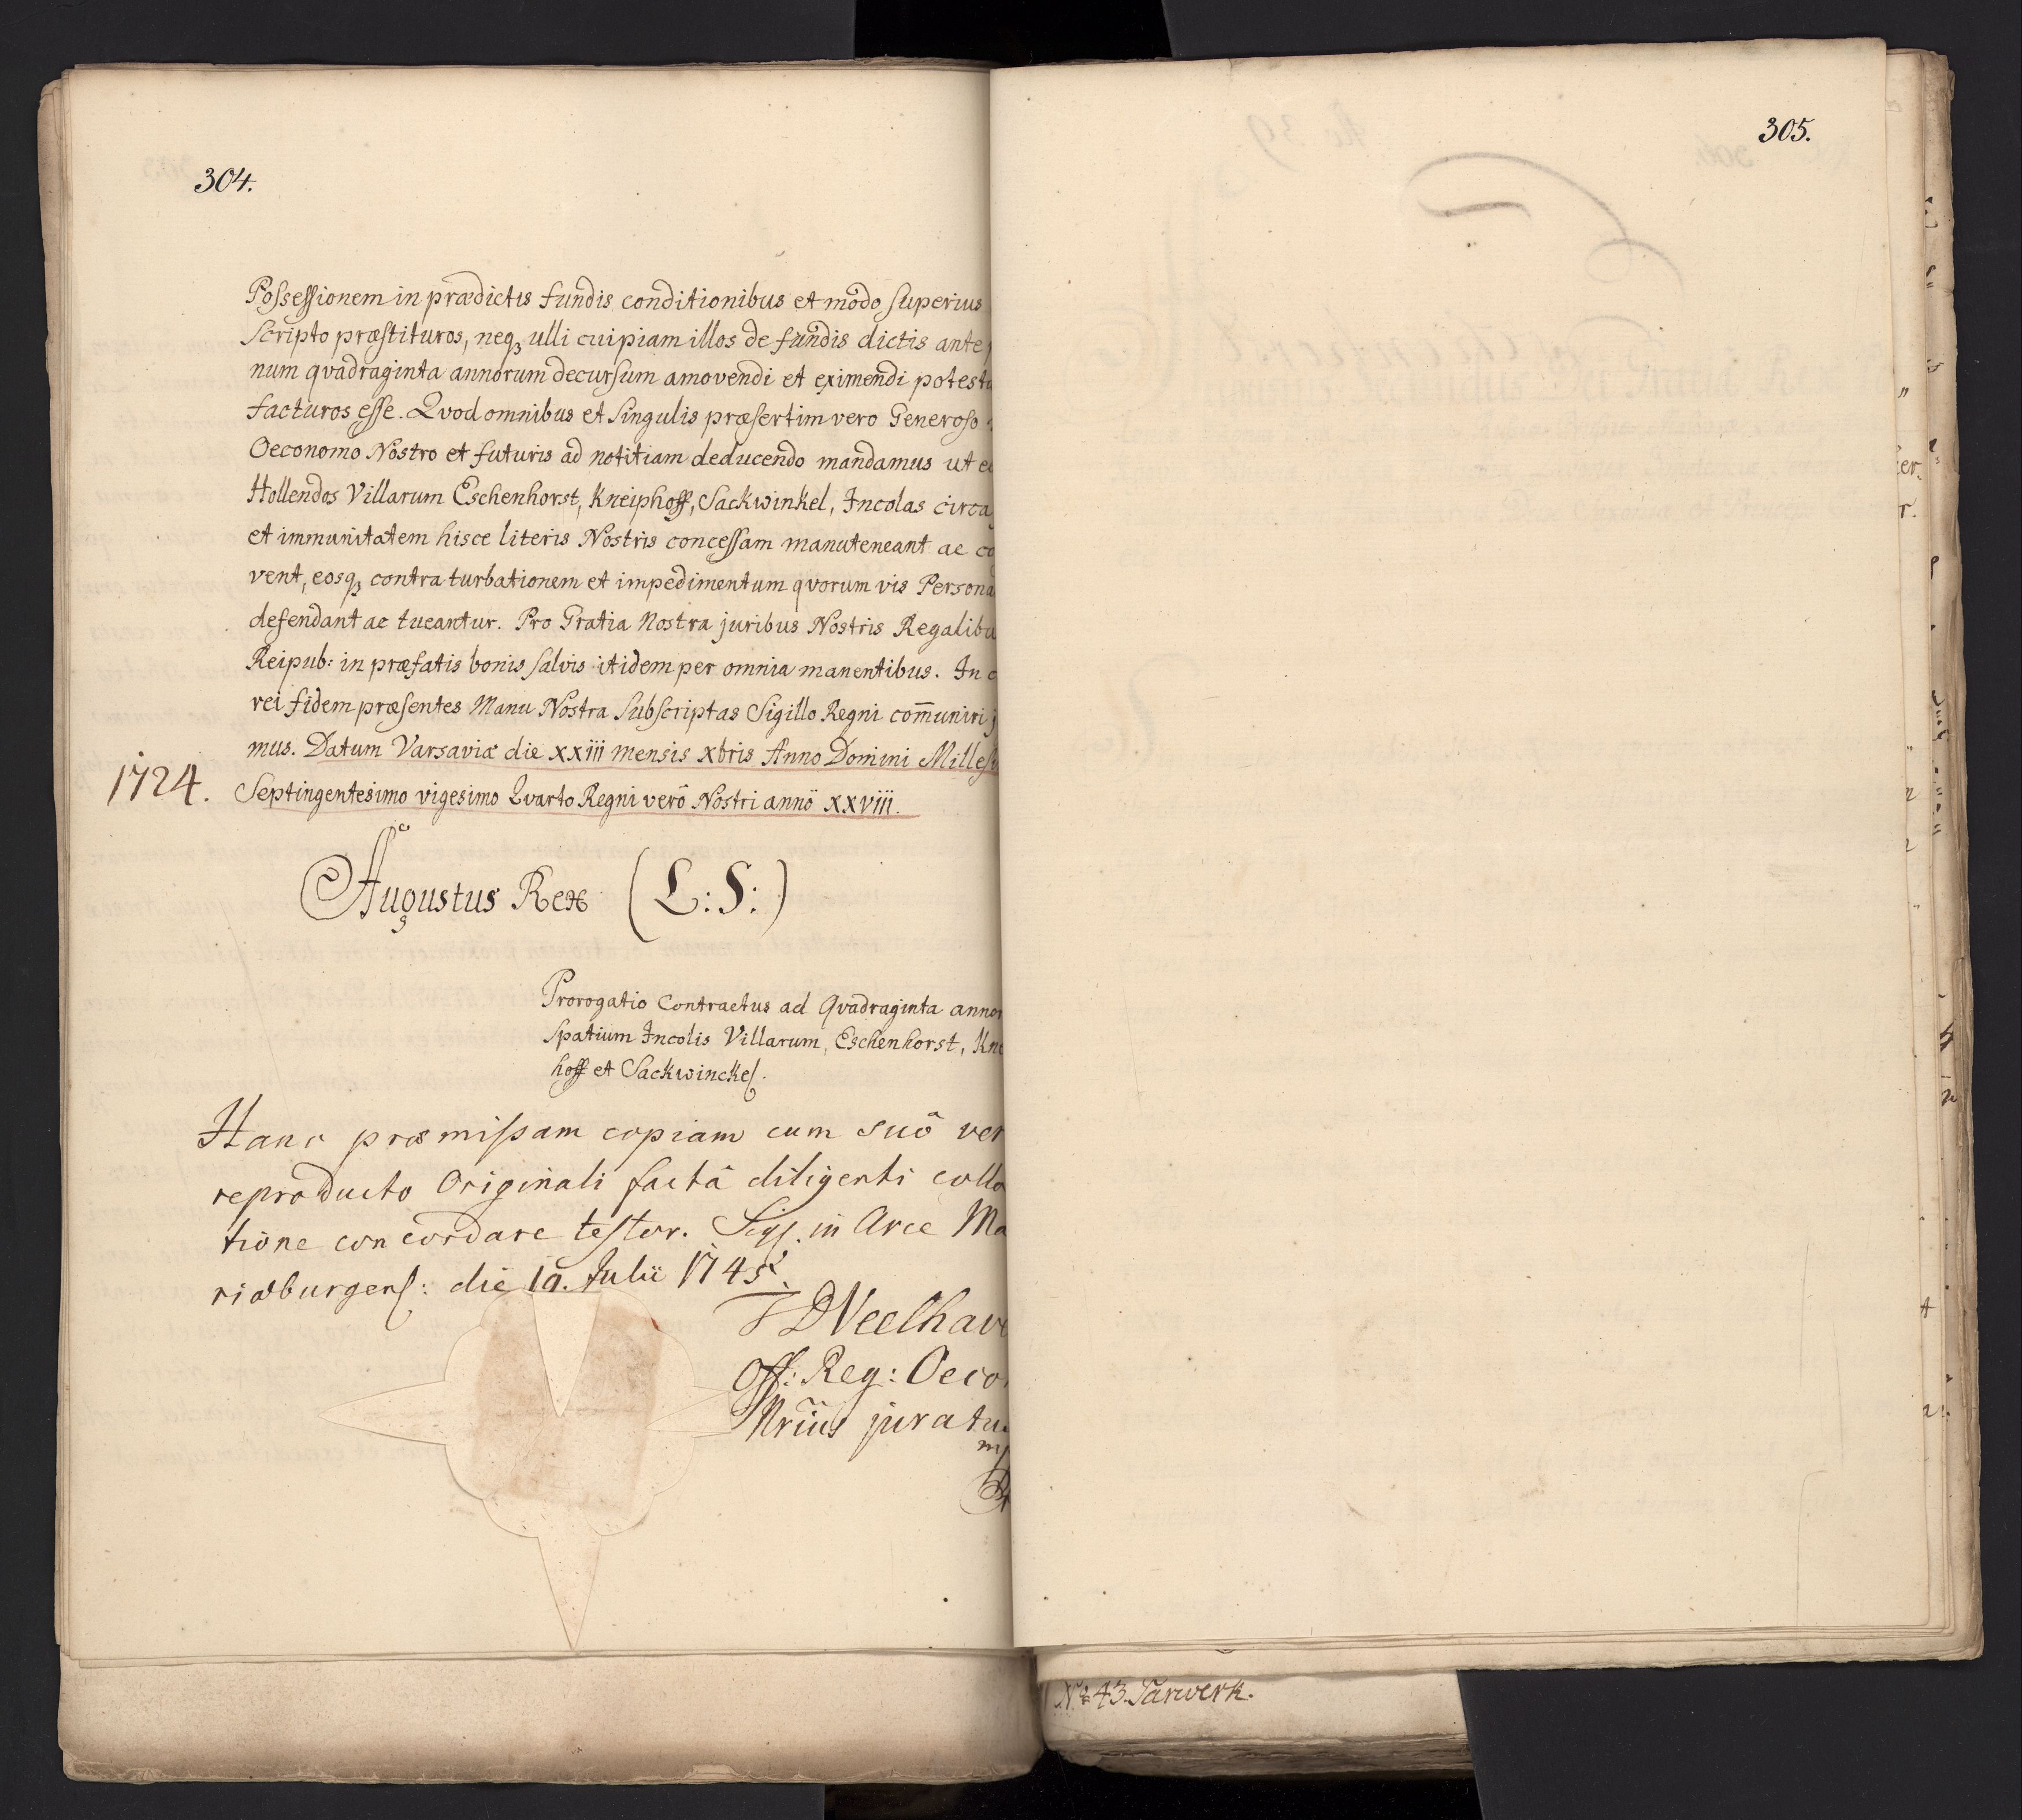 304.
Possessionem in prædictis fundis conditionibus et modo superius
scripto præstituros, neqꝫ ulli cuipiam illos de fundis dictis ante
num qvadraginta annorum decursum amovendi et eximendi potesta
facturos esse. Qvod omnibus et singulis præsertim vero Generoso
Oeconomo Nostro et futuris ad notitiam deducendo mandamus ut e
Hollendos Villarum Eschenhorst, Kneiphoff, Sackwinkel, Incolas circa
et immunitatem hisce literis Nostris concessam manuteneant ac co
vent, eosqꝫ contra turbationem et impedimentum qvorum vis Persona
defendant ac tueantur. Pro Gratia Nostra juribus Nostris Regalibu
Reipub: in præfatis bonis salvis itidem per omnia manentibus. In c
rei fidem præsentes Manu Nostra Subscriptas Sigillo Regni com̄uniri j
mus. Datum Varsaviæ die xxiii mensis xbris Anno Domini Millesi
1724. Septingentesimo vigesimo Qvarto Regni verò Nostri annô xxviii.
Augustus Rex (L:S:)
Prorogatio Contractus ad Qvadraginta annor
spatium Incolis Villarum, Eschenhorst, Kne
hoff et Sackwinckel.
Hanc præmissam copiam cum suô ver
reproducto Originali factâ diligenti colla
tione concordare testor. Sigs. in Arce Ma
riæburgens: die 19. Julii 1745.
DVeelhave
Off: Reg: Oeco
Nrius juratu
mp
305.
No 43. Parwerk.